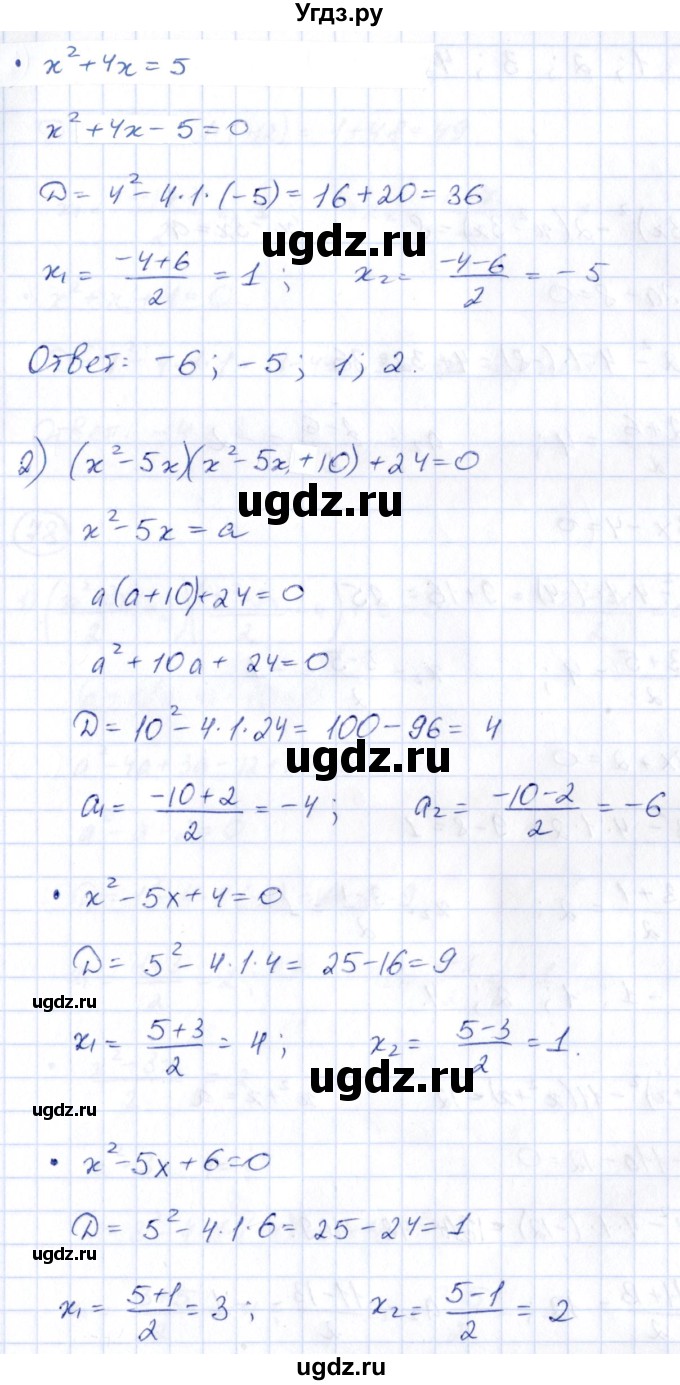 Угдз.ру
• x² + 4x = 5
x² + 4x − 5 = 0
D = 4² − 4·1·(−5) = 16 + 20 = 36
ugdz.ru
x₁ = (−4+6)/2 = 1; x₂ = (−4−6)/2 = −5
Ответ: −6; −5; 1; 2.
2) (x² − 5x)(x² − 5x + 10) + 24 = 0
ugdz.ru
x² − 5x = a
a(a+10) + 24 = 0
a² + 10a + 24 = 0
D = 10² − 4·1·24 = 100 − 96 = 4
ugdz.ru
a₁ = (−10+2)/2 = −4; a₂ = (−10−2)/2 = −6
• x² − 5x + 4 = 0
D = 5² − 4·1·4 = 25 − 16 = 9
ugdz.ru
x₁ = (5+3)/2 = 4; x₂ = (5−3)/2 = 1.
ugdz.ru
ugdz.ru
• x² − 5x + 6 = 0
D = 5² − 4·1·6 = 25 − 24 = 1
ugdz.ru
x₁ = (5+1)/2 = 3; x₂ = (5−1)/2 = 2
ugdz.ru